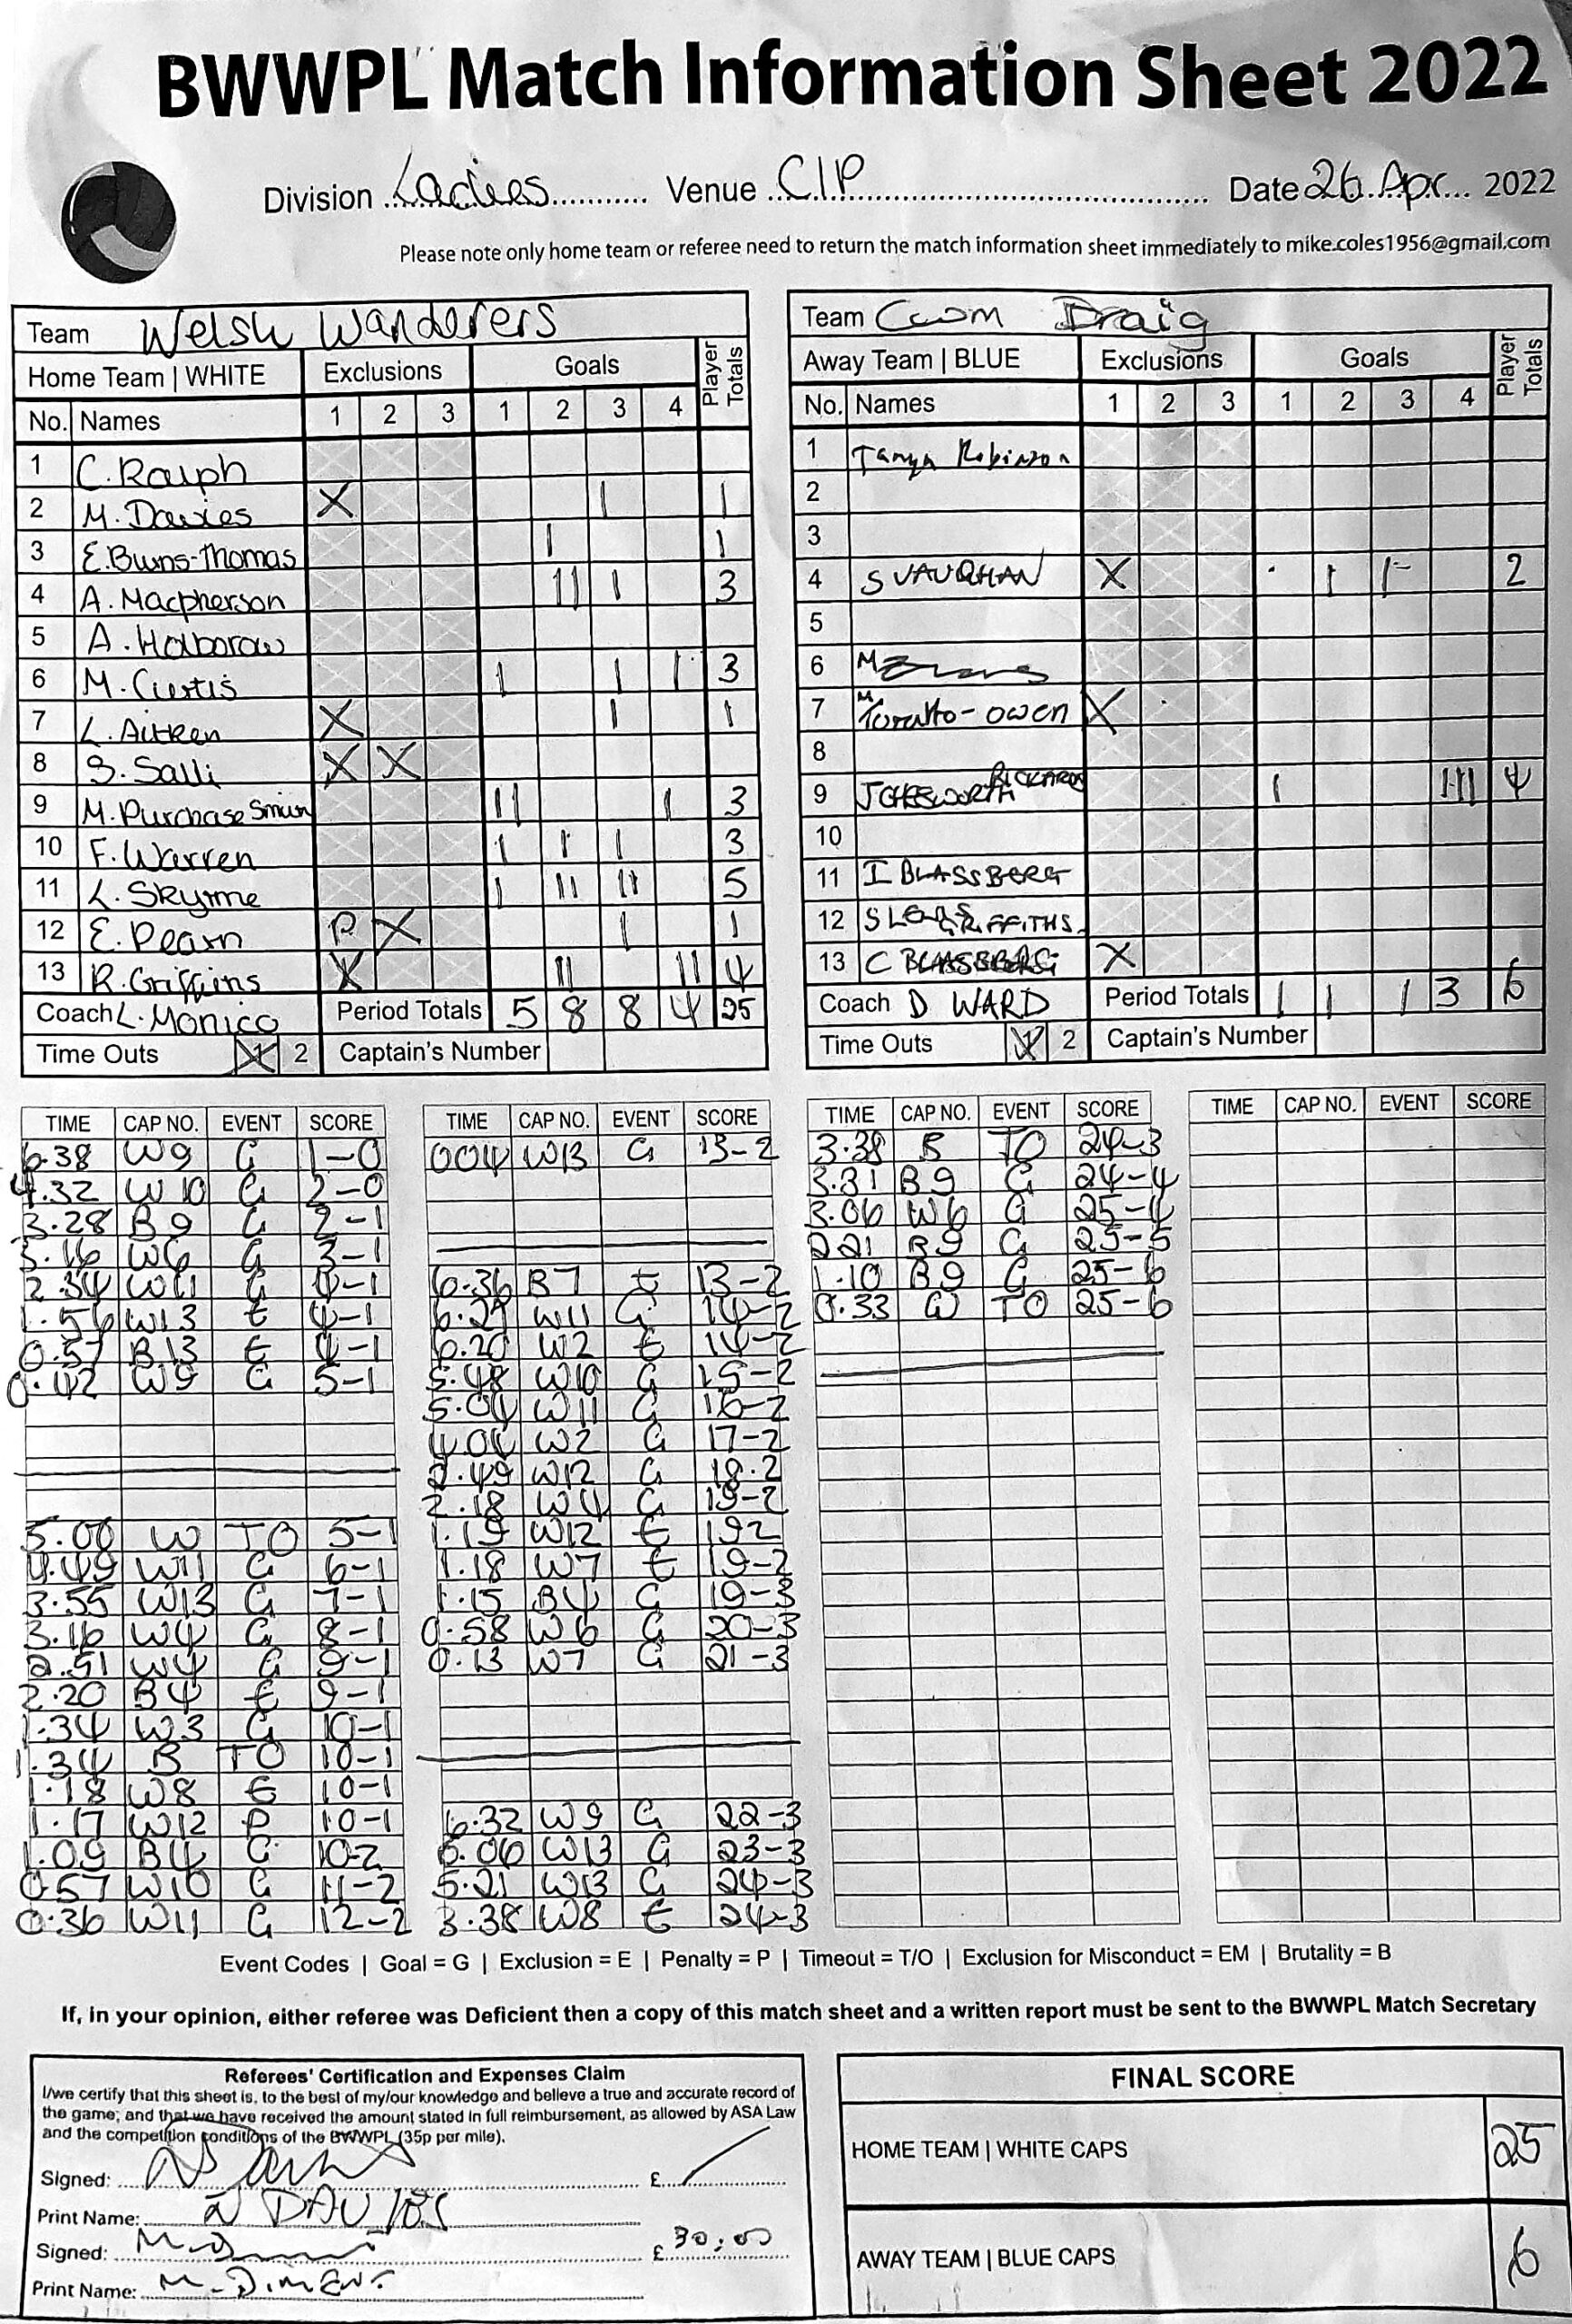 BWWPL Match Information Sheet 2022
Division Ladies Venue CIP Date 26 Apr 2022
Please note only home team or referee need to return the match information sheet immediately to mike.coles1956@gmail.com
Team Welsh Wanderers
Home Team | WHITE Exclusions Goals Player Totals
No. Names 1 2 3 1 2 3 4
1 C. Ralph
2 M. Davies X | 1
3 E. Burns-Thomas | 1
4 A. Macpherson || | 3
5 A. Holborow
6 M. Curtis | | | 3
7 L. Aitken X | 1
8 S. Salli X X
9 M. Purchase Smith || | 3
10 F. Warren | | | 3
11 L. Skyrme | || || 5
12 E. Pearn P X | 1
13 R. Griffiths X || || 4
Coach L. Monico Period Totals 5 8 8 4 25
Time Outs X 2 Captain's Number
Team Cwm Draig
Away Team | BLUE Exclusions Goals Player Totals
No. Names 1 2 3 1 2 3 4
1 Tanya Robinson
2
3
4 S VAUGHAN X | | 2
5
6 M
7 M Toronto-owen X
8
9 J CHESWORTH RICKARDS | ||| 4
10
11 I BLASSBERG
12 S GRIFFITHS
13 C BLASSBERG X
Coach D WARD Period Totals 1 1 1 3 6
Time Outs X 2 Captain's Number
TIME CAP NO. EVENT SCORE
6.38 W9 G 1-0
4.32 W10 G 2-0
3.28 B9 G 2-1
3.16 W6 G 3-1
2.34 W11 G 4-1
1.56 W13 E 4-1
0.57 B13 E 4-1
0.42 W9 G 5-1
5.00 W TO 5-1
4.49 W11 G 6-1
3.55 W13 G 7-1
3.16 W4 G 8-1
2.51 W4 G 9-1
2.20 B4 E 9-1
1.34 W3 G 10-1
1.34 B TO 10-1
1.18 W8 E 10-1
1.17 W12 P 10-1
1.09 B4 G 10-2
0.57 W10 G 11-2
0.36 W11 G 12-2
TIME CAP NO. EVENT SCORE
004 W13 G 13-2
6.36 B7 E 13-2
6.29 W11 G 14-2
6.20 W2 E 14-2
5.48 W10 G 15-2
5.04 W11 G 16-2
4.04 W2 G 17-2
2.49 W12 G 18.2
2.18 W4 G 19-2
1.19 W12 E 192
1.18 W7 E 19-2
1.15 B4 G 19-3
0.58 W6 G 20-3
0.13 W7 G 21-3
6.32 W9 G 22-3
6.06 W13 G 23-3
5.21 W13 G 24-3
3.38 W8 E 24-3
TIME CAP NO. EVENT SCORE
3.38 B TO 24-3
3.31 B9 G 24-4
3.06 W6 G 25-4
2.21 B9 G 25-5
1.10 B9 G 25-6
0.33 W TO 25-6
TIME CAP NO. EVENT SCORE
Event Codes | Goal = G | Exclusion = E | Penalty = P | Timeout = T/O | Exclusion for Misconduct = EM | Brutality = B
If, in your opinion, either referee was Deficient then a copy of this match sheet and a written report must be sent to the BWWPL Match Secretary
Referees' Certification and Expenses Claim
I/we certify that this sheet is, to the best of my/our knowledge and believe a true and accurate record of
the game; and that we have received the amount stated in full reimbursement, as allowed by ASA Law
and the competition conditions of the BWWPL (35p per mile).
Signed: £
Print Name: N DAVIES
Signed: £ 30.00
Print Name: M. DIMENT
FINAL SCORE
HOME TEAM | WHITE CAPS 25
AWAY TEAM | BLUE CAPS 6